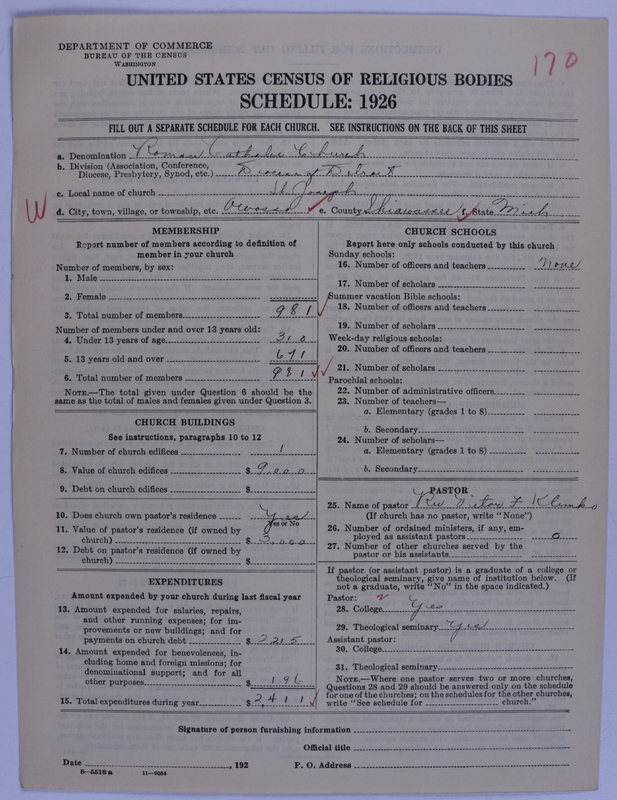 DEPARTMENT OF COMMERCE
BUREAU OF THE CENSUS
WASHINGTON
170
UNITED STATES CENSUS OF RELIGIOUS BODIES
SCHEDULE: 1926
FILL OUT A SEPARATE SCHEDULE FOR EACH CHURCH. SEE INSTRUCTIONS ON THE BACK OF THIS SHEET
a. Denomination Roman Catholic Church
b. Division (Association, Conference,
Diocese, Presbytery, Synod, etc.) Diocese of Detroit
c. Local name of church St. Joseph
W d. City, town, village, or township, etc. Owosso e. County Shiawassee f. State Mich
MEMBERSHIP
Report number of members according to definition of
member in your church
Number of members, by sex:
1. Male
2. Female
3. Total number of members 981
Number of members under and over 13 years old:
4. Under 13 years of age 310
5. 13 years old and over 671
6. Total number of members 981
NOTE.—The total given under Question 6 should be the
same as the total of males and females given under Question 3.
CHURCH BUILDINGS
See instructions, paragraphs 10 to 12
7. Number of church edifices 1
8. Value of church edifices $ 9,000
9. Debt on church edifices $
10. Does church own pastor's residence Yes
Yes or No
11. Value of pastor's residence (if owned by
church) $ 3,000
12. Debt on pastor's residence (if owned by
church) $
EXPENDITURES
Amount expended by your church during last fiscal year
13. Amount expended for salaries, repairs,
and other running expenses; for im-
provements or new buildings; and for
payments on church debt $ 2215
14. Amount expended for benevolences, in-
cluding home and foreign missions; for
denominational support; and for all
other purposes $ 196
15. Total expenditures during year $ 2,411
CHURCH SCHOOLS
Report here only schools conducted by this church
Sunday schools:
16. Number of officers and teachers None
17. Number of scholars
Summer vacation Bible schools:
18. Number of officers and teachers
19. Number of scholars
Week-day religious schools:
20. Number of officers and teachers
21. Number of scholars
Parochial schools:
22. Number of administrative officers
23. Number of teachers—
a. Elementary (grades 1 to 8)
b. Secondary
24. Number of scholars—
a. Elementary (grades 1 to 8)
b. Secondary
PASTOR
25. Name of pastor Rev Victor F Klimko
(If church has no pastor, write "None")
26. Number of ordained ministers, if any, em-
ployed as assistant pastors 0
27. Number of other churches served by the
pastor or his assistants
If pastor (or assistant pastor) is a graduate of a college or
theological seminary, give name of institution below. (If
not a graduate, write "No" in the space indicated.)
Pastor: 2
28. College Yes
29. Theological seminary Yes
Assistant pastor:
30. College
31. Theological seminary
NOTE.—Where one pastor serves two or more churches,
Questions 28 and 29 should be answered only on the schedule
for one of the churches; on the schedules for the other churches,
write "See schedule for church."
Signature of person furnishing information
Official title
Date , 192 P. O. Address
8—5518 a 11—9064